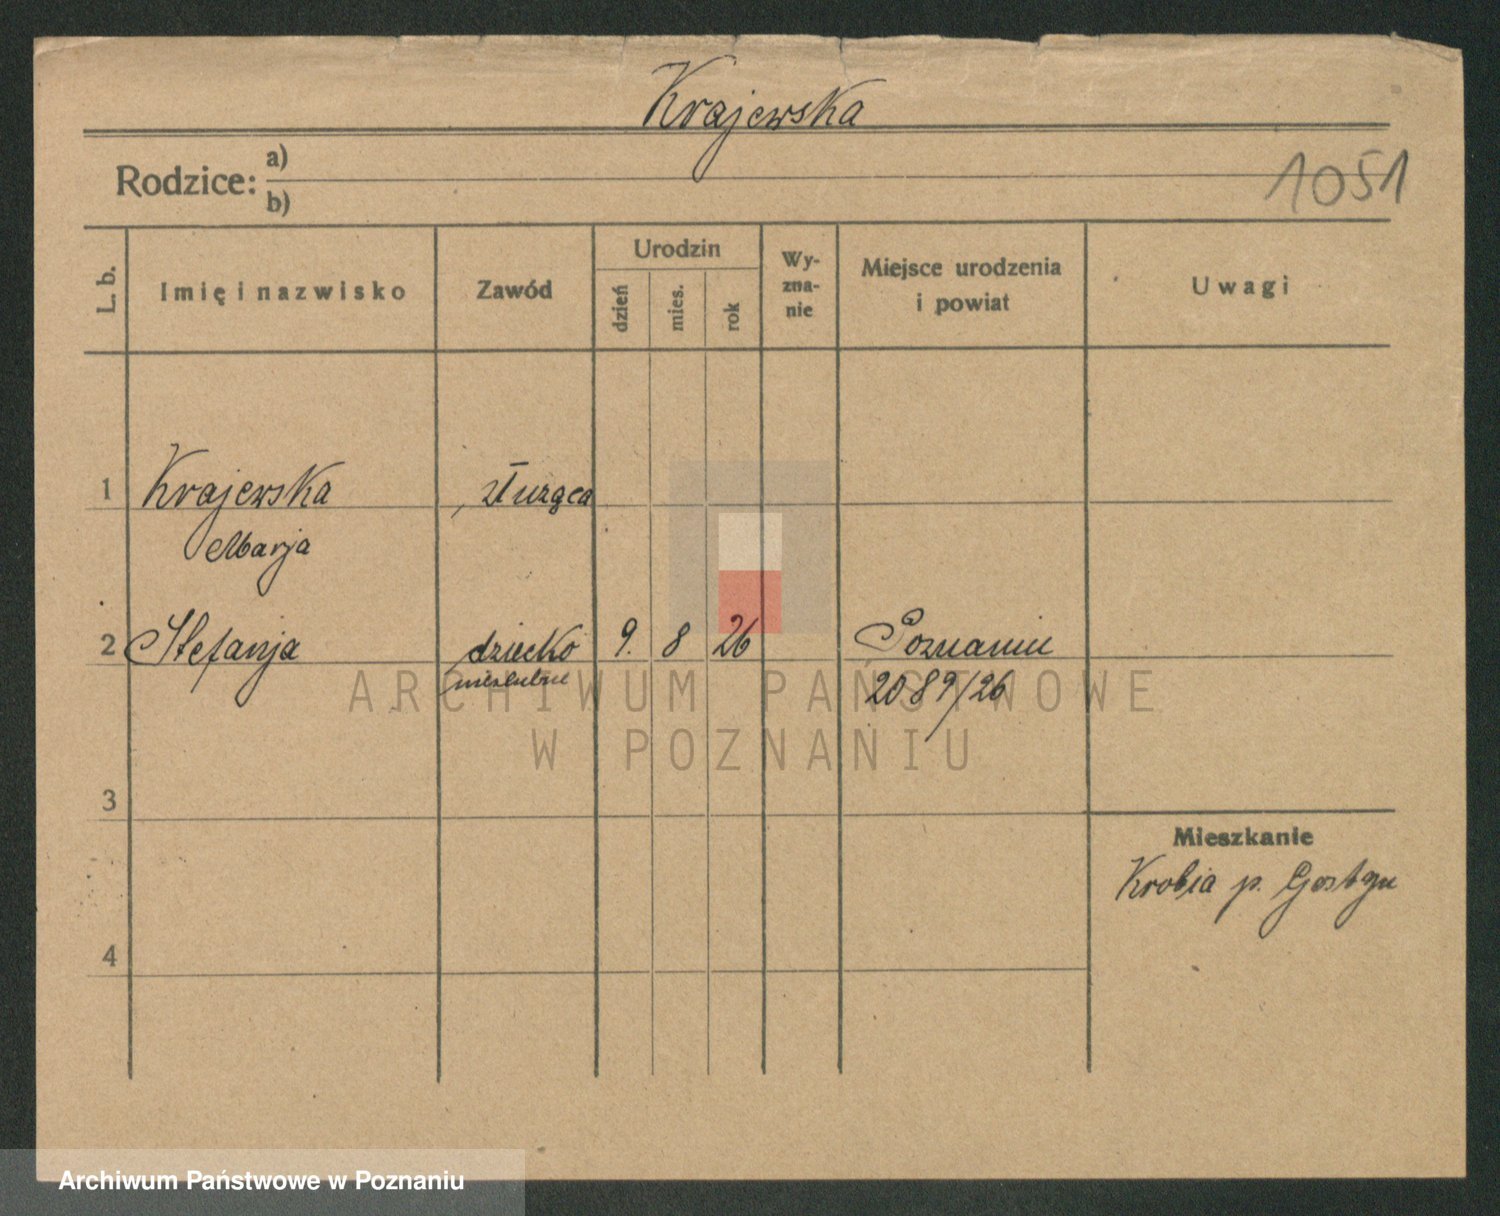 Krajewska
Rodzice: a)
b)
1051
L. b.
Imię i nazwisko
Zawód
Urodzin
dzień
mies.
rok
Wy-
zna-
nie
Miejsce urodzenia
i powiat
Uwagi
1 Krajewska służąca
Marja
2 Stefanja dziecko 9. 8 26 Poznaniu
nieślubne 2089/26
ARCHIWUM PAŃSTWOWE
W POZNANIU
3
Mieszkanie
Krobia p. Gostyn
4
Archiwum Państwowe w Poznaniu